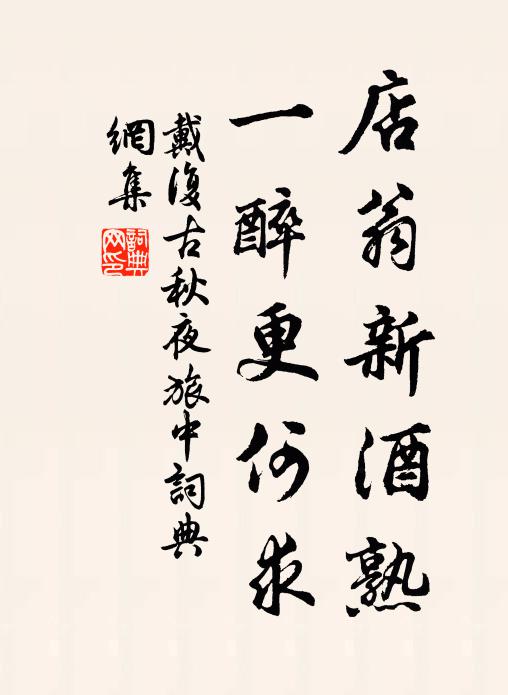 店翁新酒熟
一醉更何求
戴復古秋夜旅中詞典
網集
詞典網印